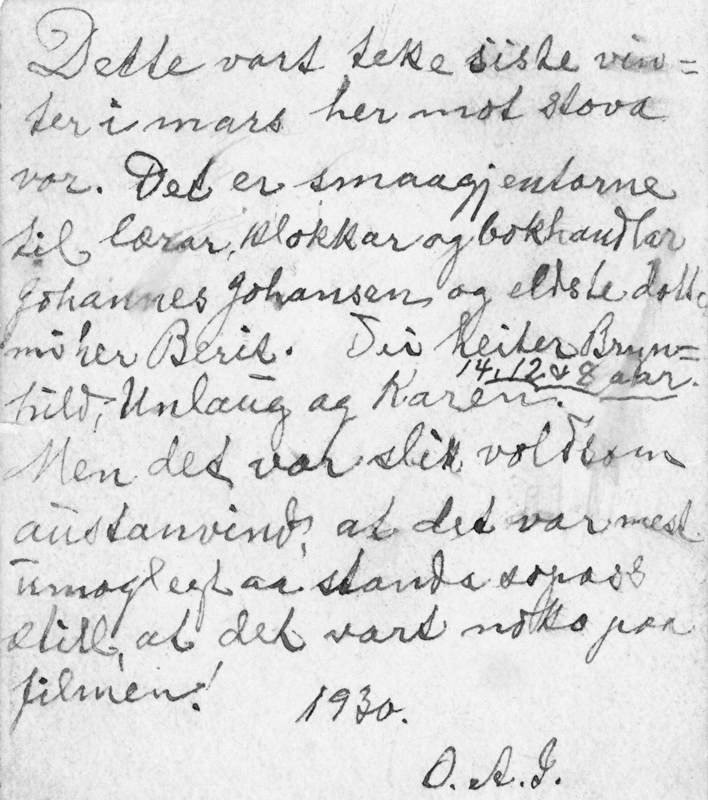 Dette vart teke siste vin=
ter i mars her mot stova
vor. Det er smaagjentorne
til lærar, klokkar og bokhandlar
Johannes Johansen, og eldste dott
mi her Berit. Dei heiter Bryn=
14, 12 & 8 aar.
hild, Unlaug og Karen.
Men det var slik voldsom
austanvind, at det var mest
umoglegt aa standa sopass
still, at det vart noko paa
filmen!
1930.
O. A. J.